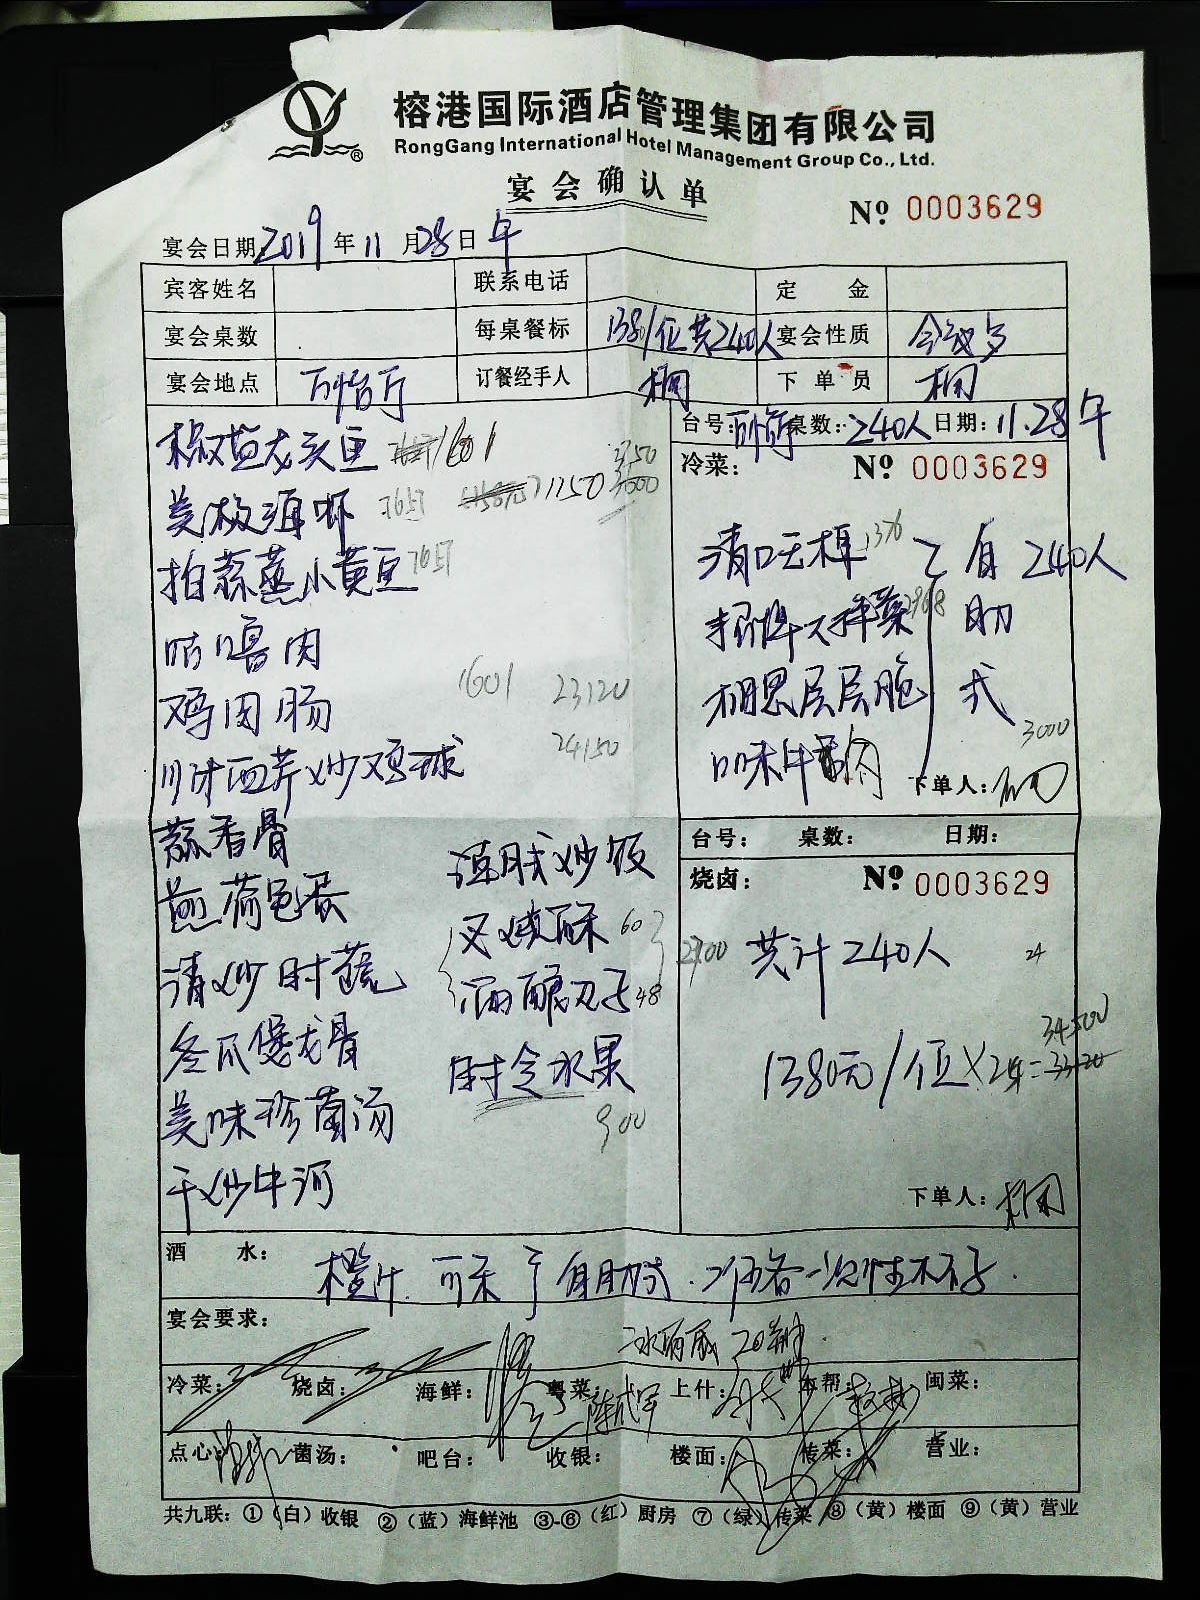 榕港国际酒店管理集团有限公司
RongGang International Hotel Management Group Co., Ltd.
宴会确认单
Nº 0003629
宴会日期 2019 年 11 月 28 日 午
宾客姓名 联系电话 定金
宴会桌数 每桌餐标 138/位 共240人 宴会性质
宴会地点 万怡厅 订餐经手人 桐 下单员 桐
台号: 桌数: 240人 日期: 11.28午
冷菜: Nº 0003629
椒盐龙头鱼 1601 3000
美极海虾 11250
拍蒜蒸小黄鱼
咕噜肉
鸡肉肠 1601 23120
川味 炒鸡球 24150
蒜香骨
煎荷包蛋
清炒时蔬
冬瓜煲龙骨
美味珍菌汤
干炒牛河
炒饭
叉烧酥 60
48
时令水果
900
清口 1376 自 240人
2968 助
相思层层脆 式
口味牛肉 3000
下单人:
台号: 桌数: 日期:
烧卤: Nº 0003629
共计240人 24
34500
1380元/位×24=33120
下单人: 桐
酒水: 橙汁. 可乐 自助式. 一次性
宴会要求:
冷菜: 烧卤: 海鲜: 粤菜: 上什: 本帮: 闽菜:
点心: 菌汤: 吧台: 收银: 楼面: 传菜: 营业:
共九联: ①(白)收银 ②(蓝)海鲜池 ③-⑥(红)厨房 ⑦(绿)传菜 ⑧(黄)楼面 ⑨(黄)营业